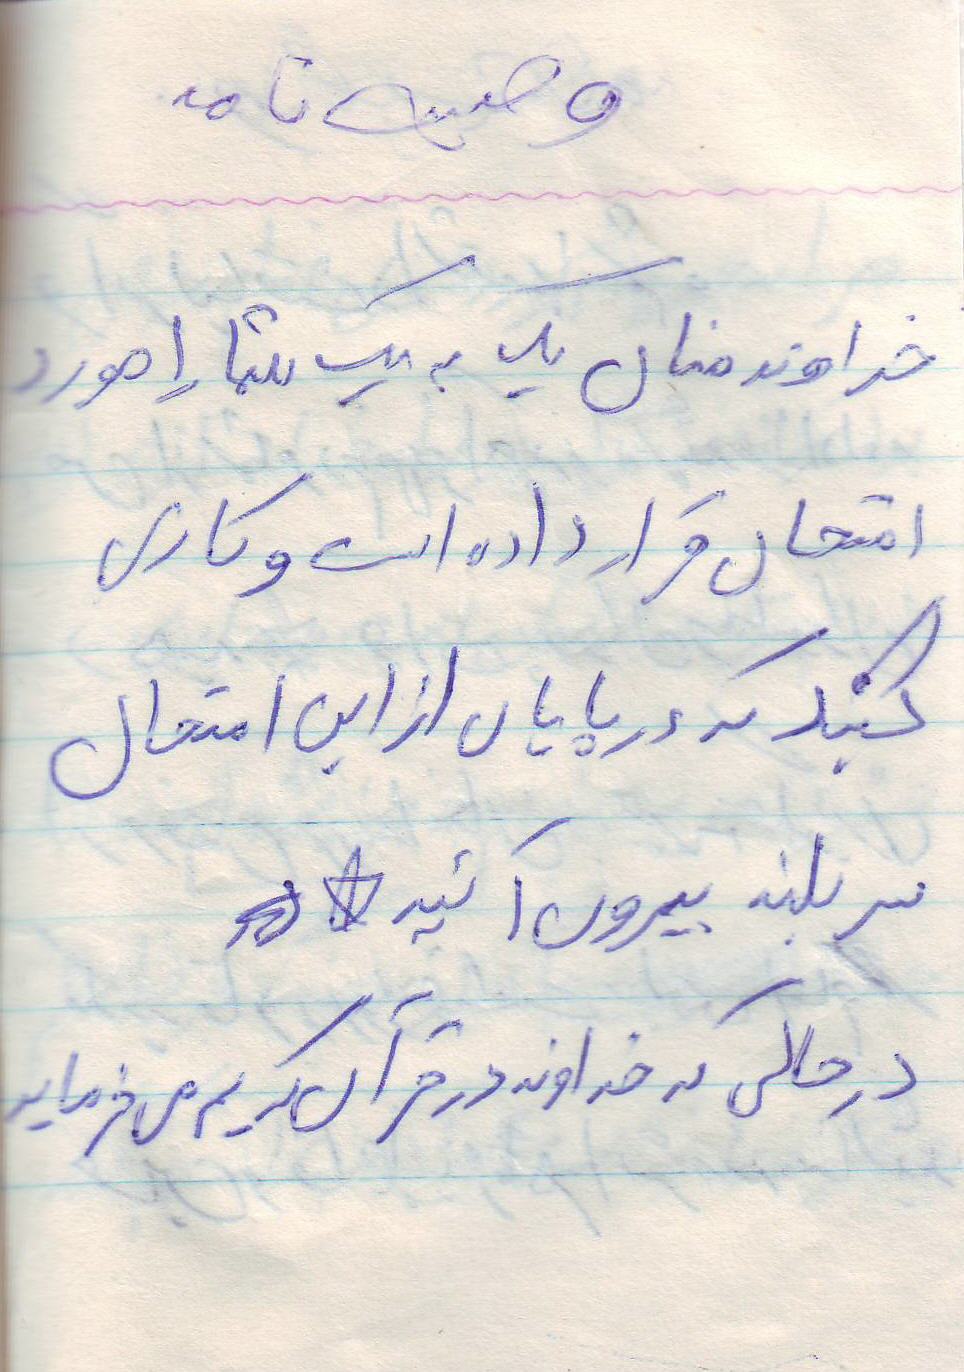 وصیت نامه
خداوند منان یک به یک شما را مورد
امتحان قرار داده است و کاری
کنید که در پایان از این امتحان
سر بلند بیرون آئید
در حالی که خداوند در قرآن کریم می فرماید